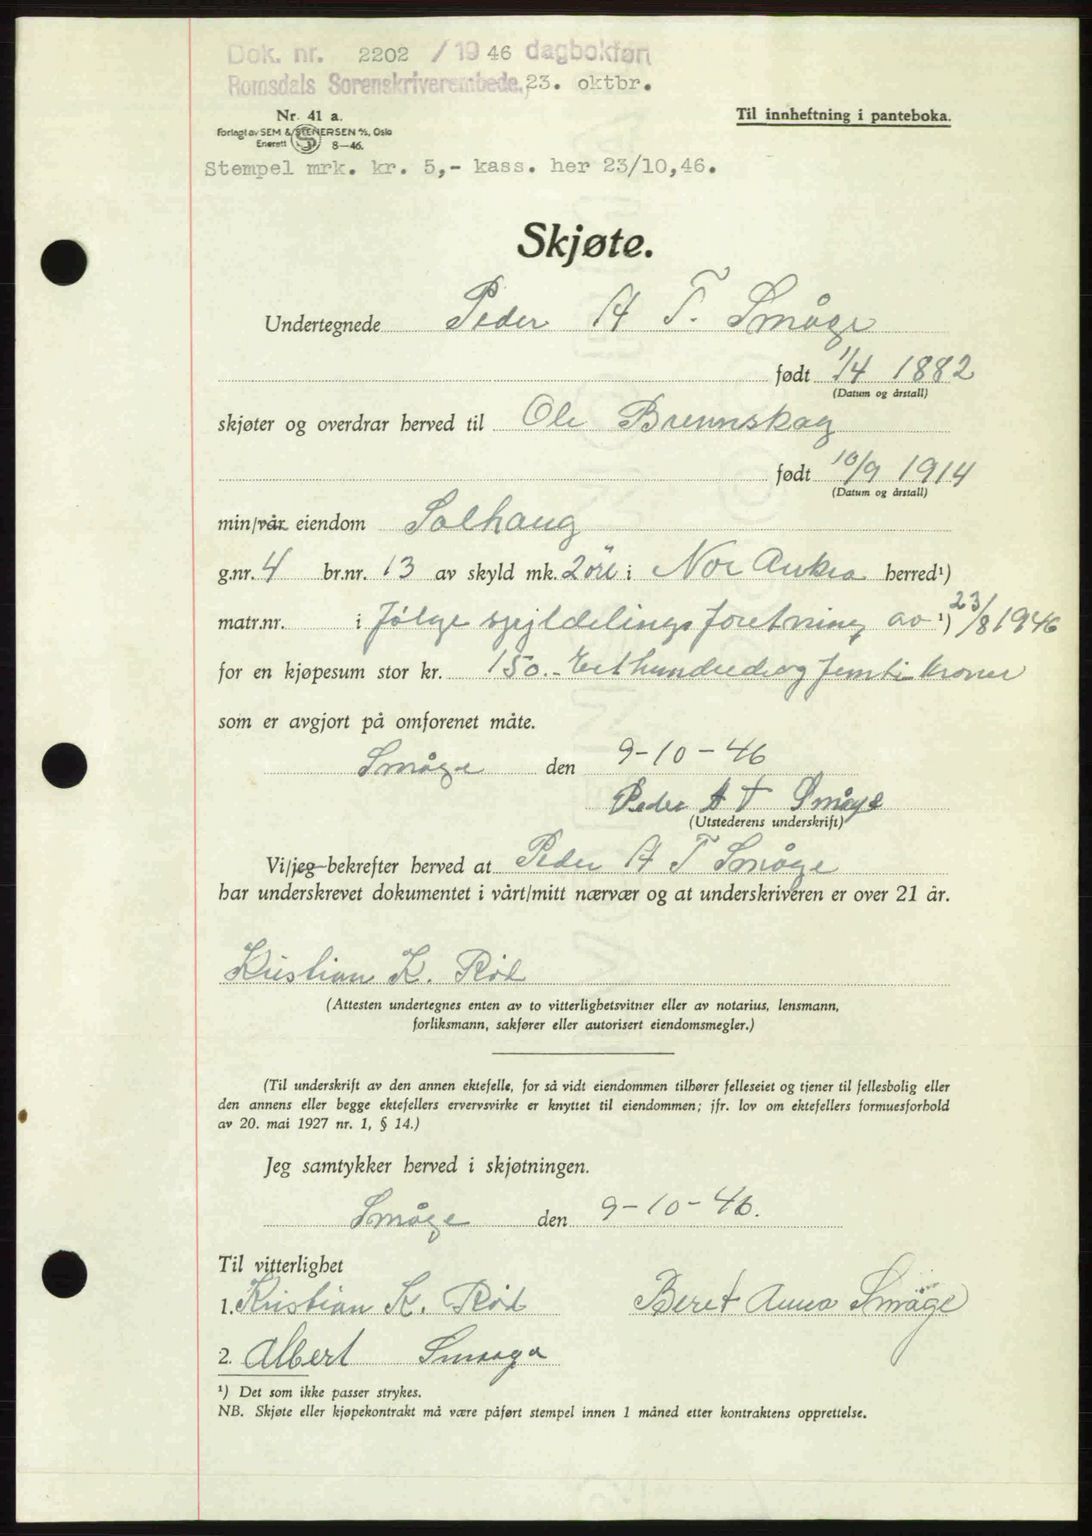 Dok. nr. 2202 / 1946 dagbokført
Romsdals Sorenskriverembede, 23. oktbr.
Nr. 41 a.
Forlagt av SEM & STENERSEN A/S, Oslo
Enerett 8—46.
Til innheftning i panteboka.
Stempel mrk. kr. 5,- kass. her 23/10,46.
Skjøte.
Undertegnede Peder A T. Småge
født 1/4 1882
(Datum og årstall)
skjøter og overdrar herved til Ole Brennskag
født 10/9 1914
(Datum og årstall)
min/vår eiendom Solhaug
g.nr. 4 br.nr. 13 av skyld mk. 2 öre i Nor Aukra herred¹)
matr.nr. i følge skyldelingsforetning av ¹) 23/8 1946
for en kjøpesum stor kr. 150.- Ett hundrede og femti kroner
som er avgjort på omforenet måte.
Småge den 9-10-46
Peder A T Småge
(Utstederens underskrift)
Vi/jeg bekrefter herved at Peder A T Småge
har underskrevet dokumentet i vårt/mitt nærvær og at underskriveren er over 21 år.
Kristian K. Röd
(Attesten undertegnes enten av to vitterlighetsvitner eller av notarius, lensmann,
forliksmann, sakfører eller autorisert eiendomsmegler.)
(Til underskrift av den annen ektefelle, for så vidt eiendommen tilhører felleseiet og tjener til fellesbolig eller
den annens eller begge ektefellers ervervsvirke er knyttet til eiendommen; jfr. lov om ektefellers formuesforhold
av 20. mai 1927 nr. 1, § 14.)
Jeg samtykker herved i skjøtningen.
Småge den 9-10-46.
Til vitterlighet
1. Kristian K. Röd Beret Anna Småge
2. Albert Smaage
¹) Det som ikke passer strykes.
NB. Skjøte eller kjøpekontrakt må være påført stempel innen 1 måned etter kontraktens opprettelse.